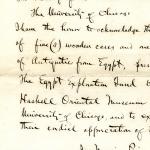 The University of Chicago
I have the honor to acknowledge the
of five(5) wooden cases and one
of Antiquities from Egypt, pres
The Egypt Exploration Fund to
Haskell Oriental Museum
University of Chicago, and to ex
their cordial appreciation of